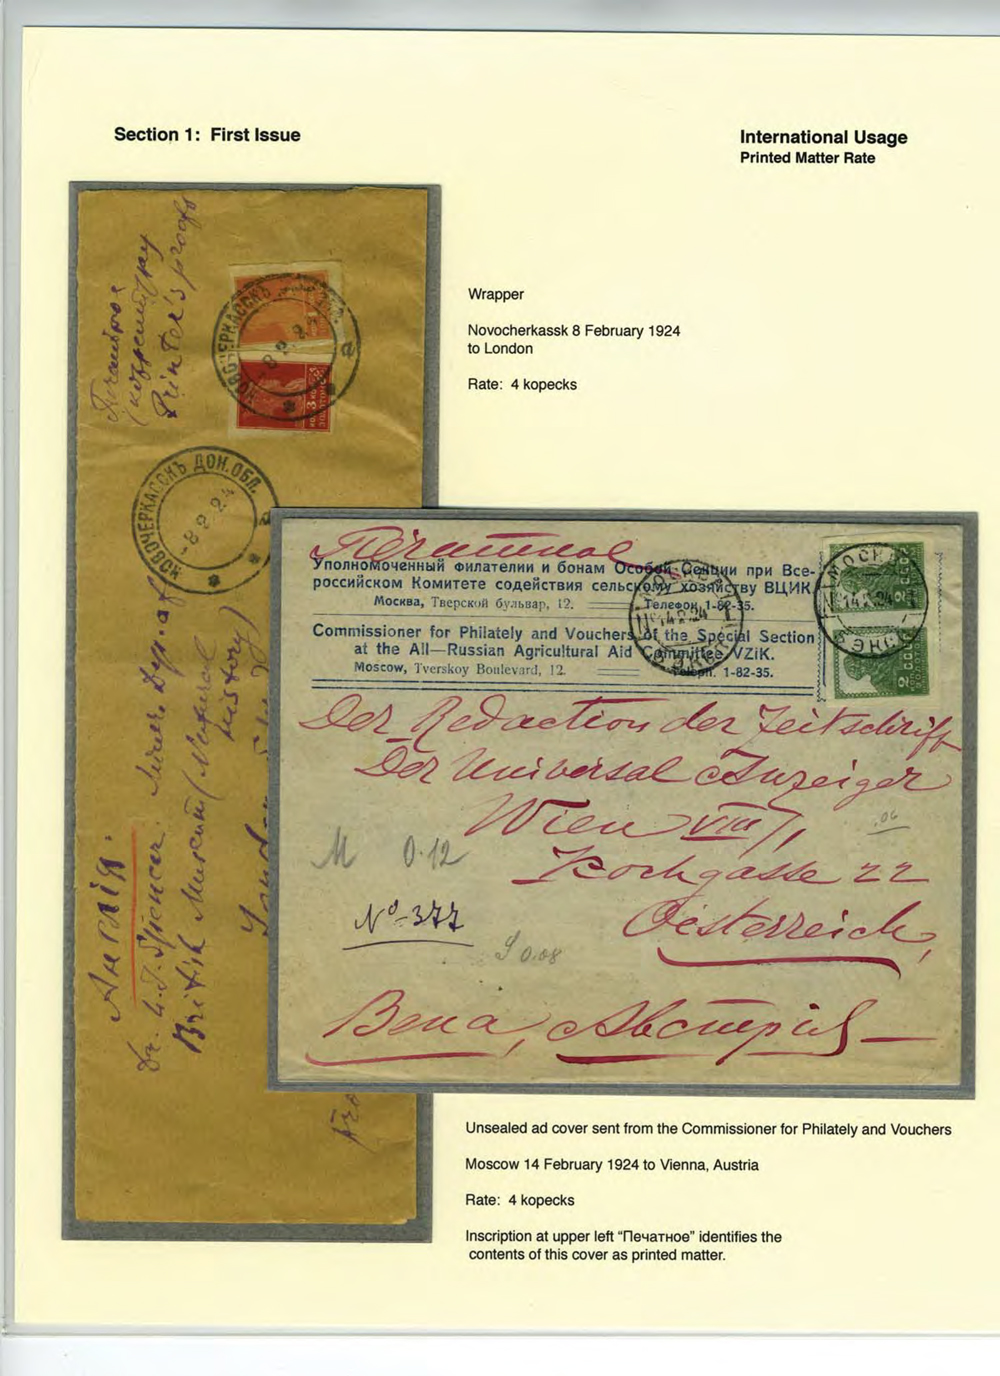 Section 1: First Issue
International Usage
Printed Matter Rate
Wrapper
Novocherkassk 8 February 1924
to London
Rate: 4 kopecks
Printer's proofs
НОВОЧЕРКАССКЪ
-8 2 24
3
НОВОЧЕРКАССКЪ ДОН. ОБЛ.
-8 2 24
а
Англія.
Dr. L. J. Spencer.
British Museum (Natural
history)
Печатное
Уполномоченный филателии и бонам Особой Секции при Все-
российском Комитете содействия сельскому хозяйству ВЦИК
Москва, Тверской бульвар, 12. Телефон 1-82-35.
Commissioner for Philately and Vouchers of the Special Section
at the All—Russian Agricultural Aid Committee VZiK.
Moscow, Tverskoy Boulevard, 12. Teleph. 1-82-35.
МОСКВА
14 2 24
МОСКВА
14 2 24
2
2
Der Redaction der Zeitschrift
Der Universal Anzeiger
Wien VIII,
Kochgasse 22
Oesterreich,
.06
M 0.12
№-377
0.08
Вена, Австрия
Unsealed ad cover sent from the Commissioner for Philately and Vouchers
Moscow 14 February 1924 to Vienna, Austria
Rate: 4 kopecks
Inscription at upper left “Печатное” identifies the
contents of this cover as printed matter.